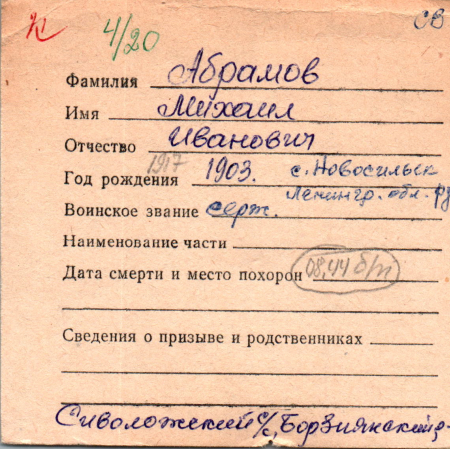 к 4/20 св
Фамилия Абрамов
Имя Михаил
Отчество Иванович
1917
Год рождения 1903. с. Новосильск
Ленингр. обл. РУ
Воинское звание серж.
Наименование части
Дата смерти и место похорон 08.44 б/п
Сведения о призыве и родственниках
Сиволожский с/с, Борзнянский р-